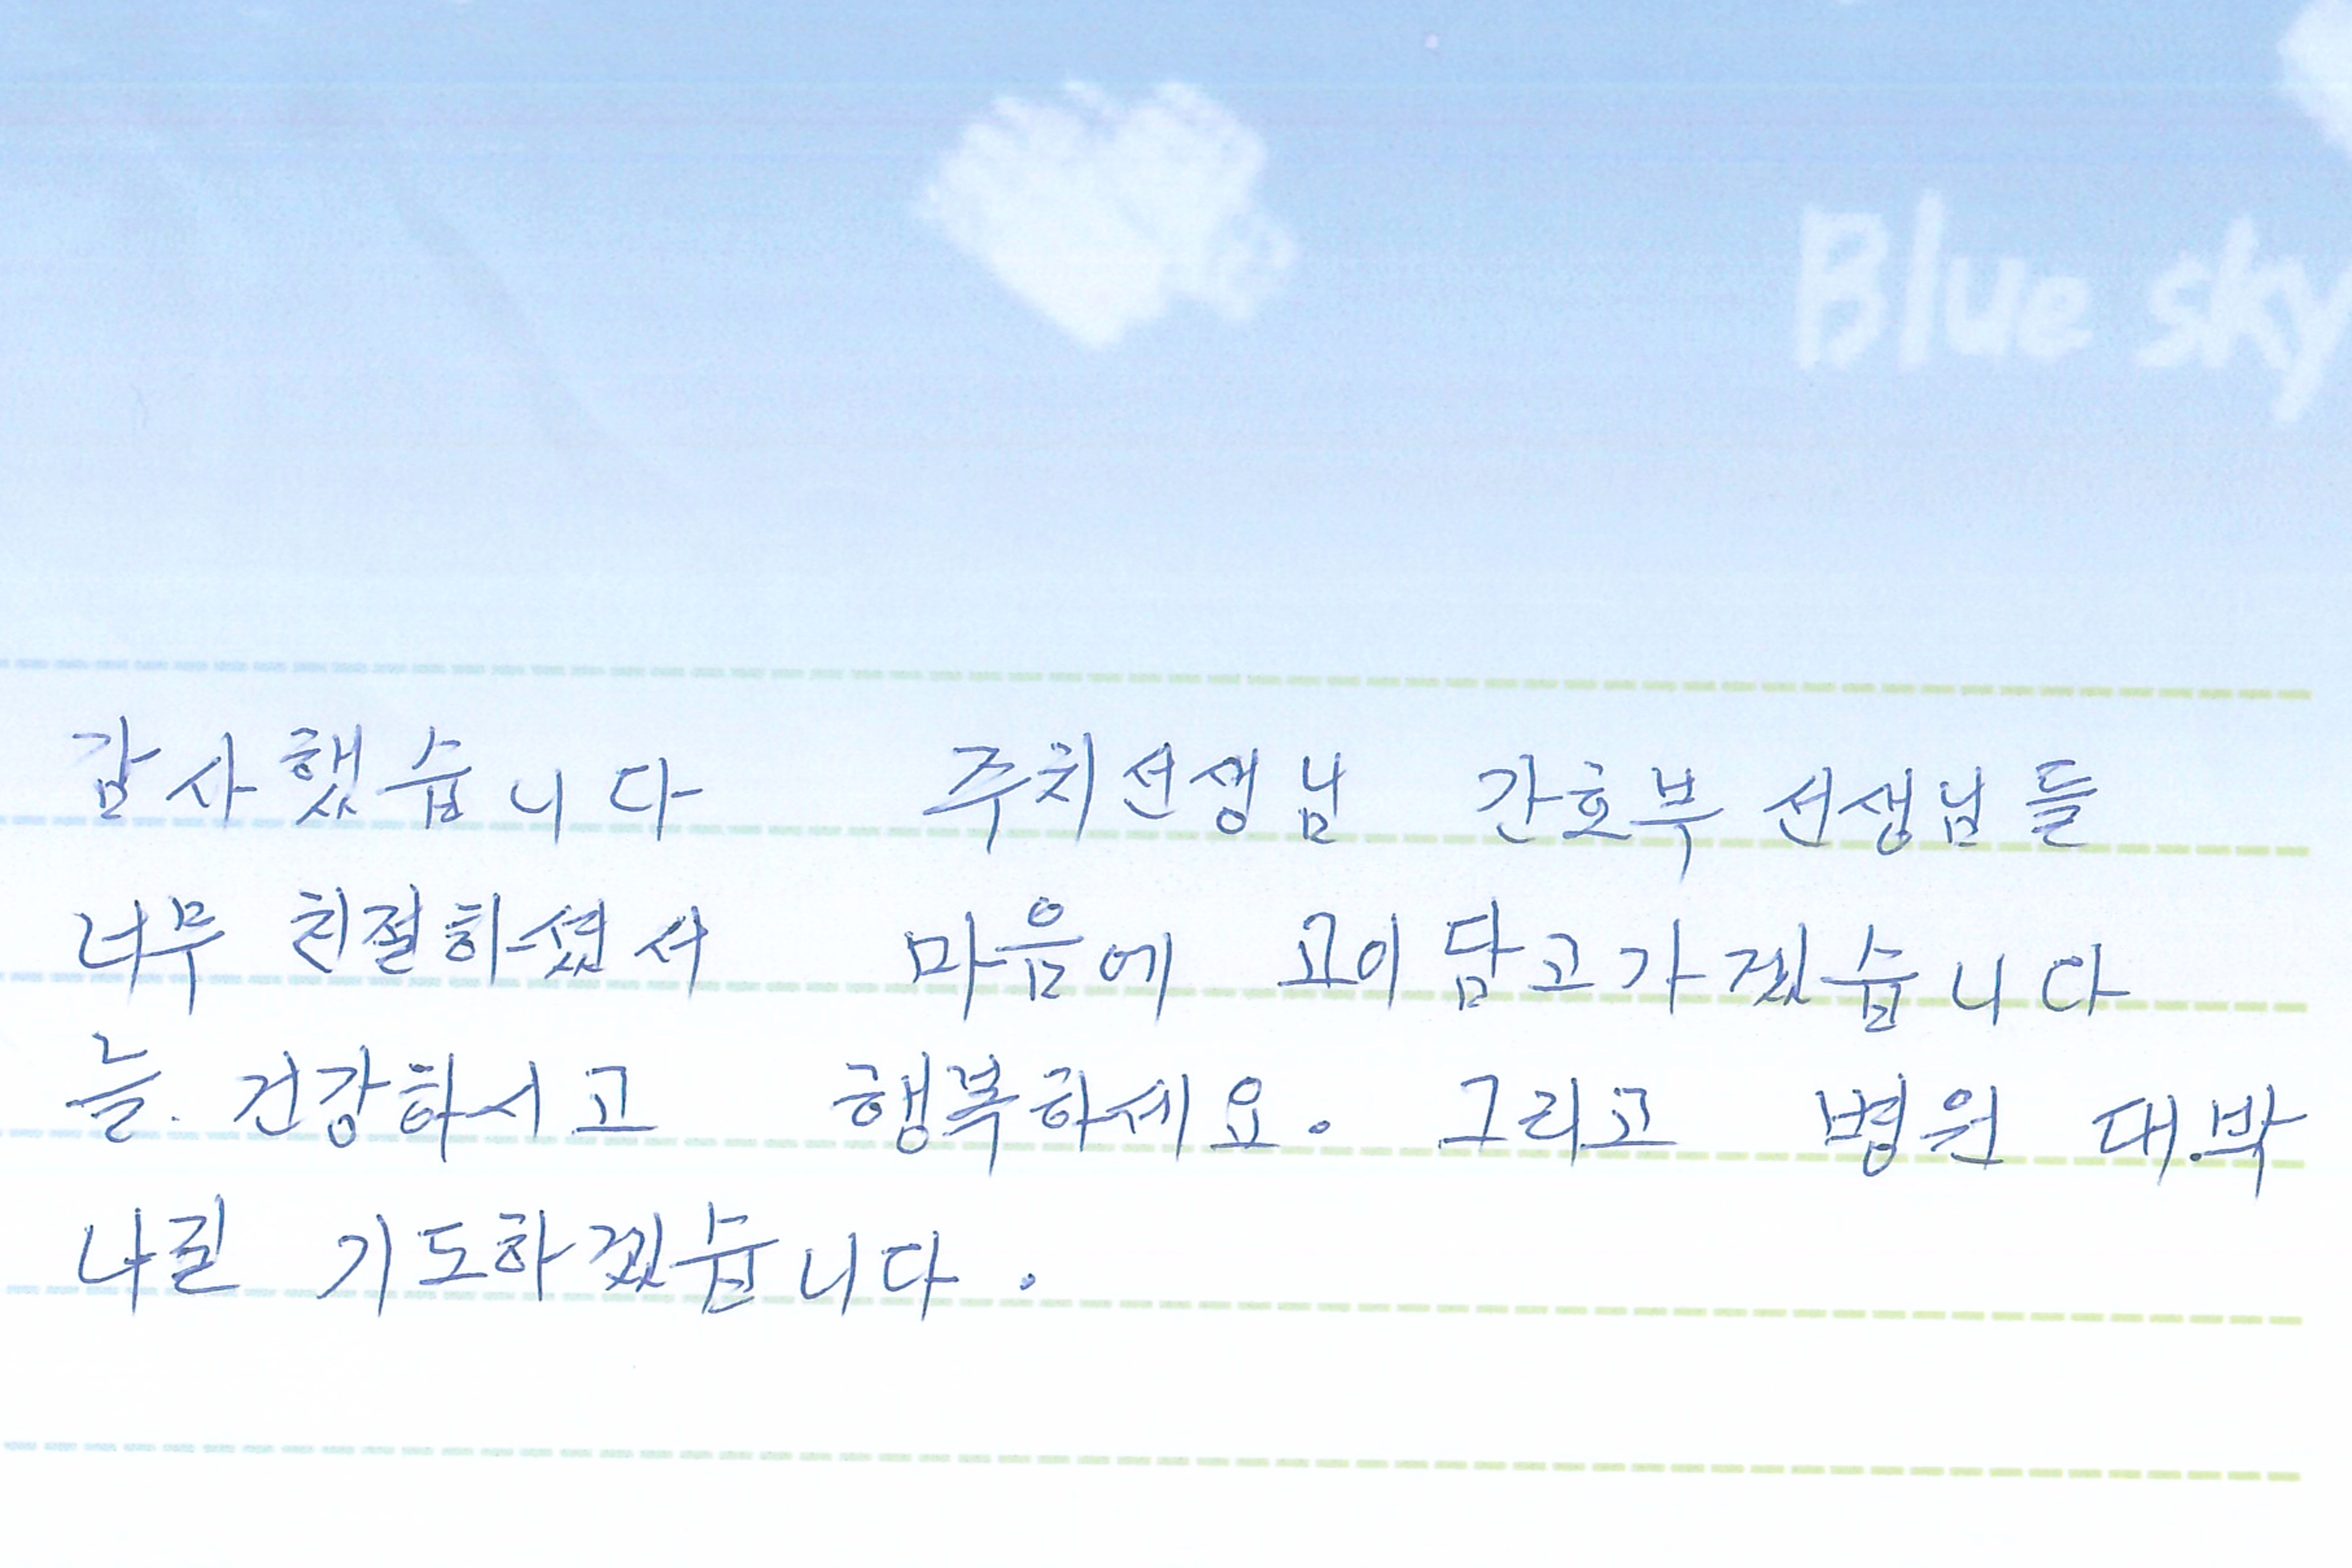 Blue sky
감사했습니다 주치선생님 간호부 선생님들
너무 친절하셨서 마음에 고이담고가겠습니다
늘. 건강하시고 행복하세요. 그리고 병원 대.박
나길 기도하겠습니다.